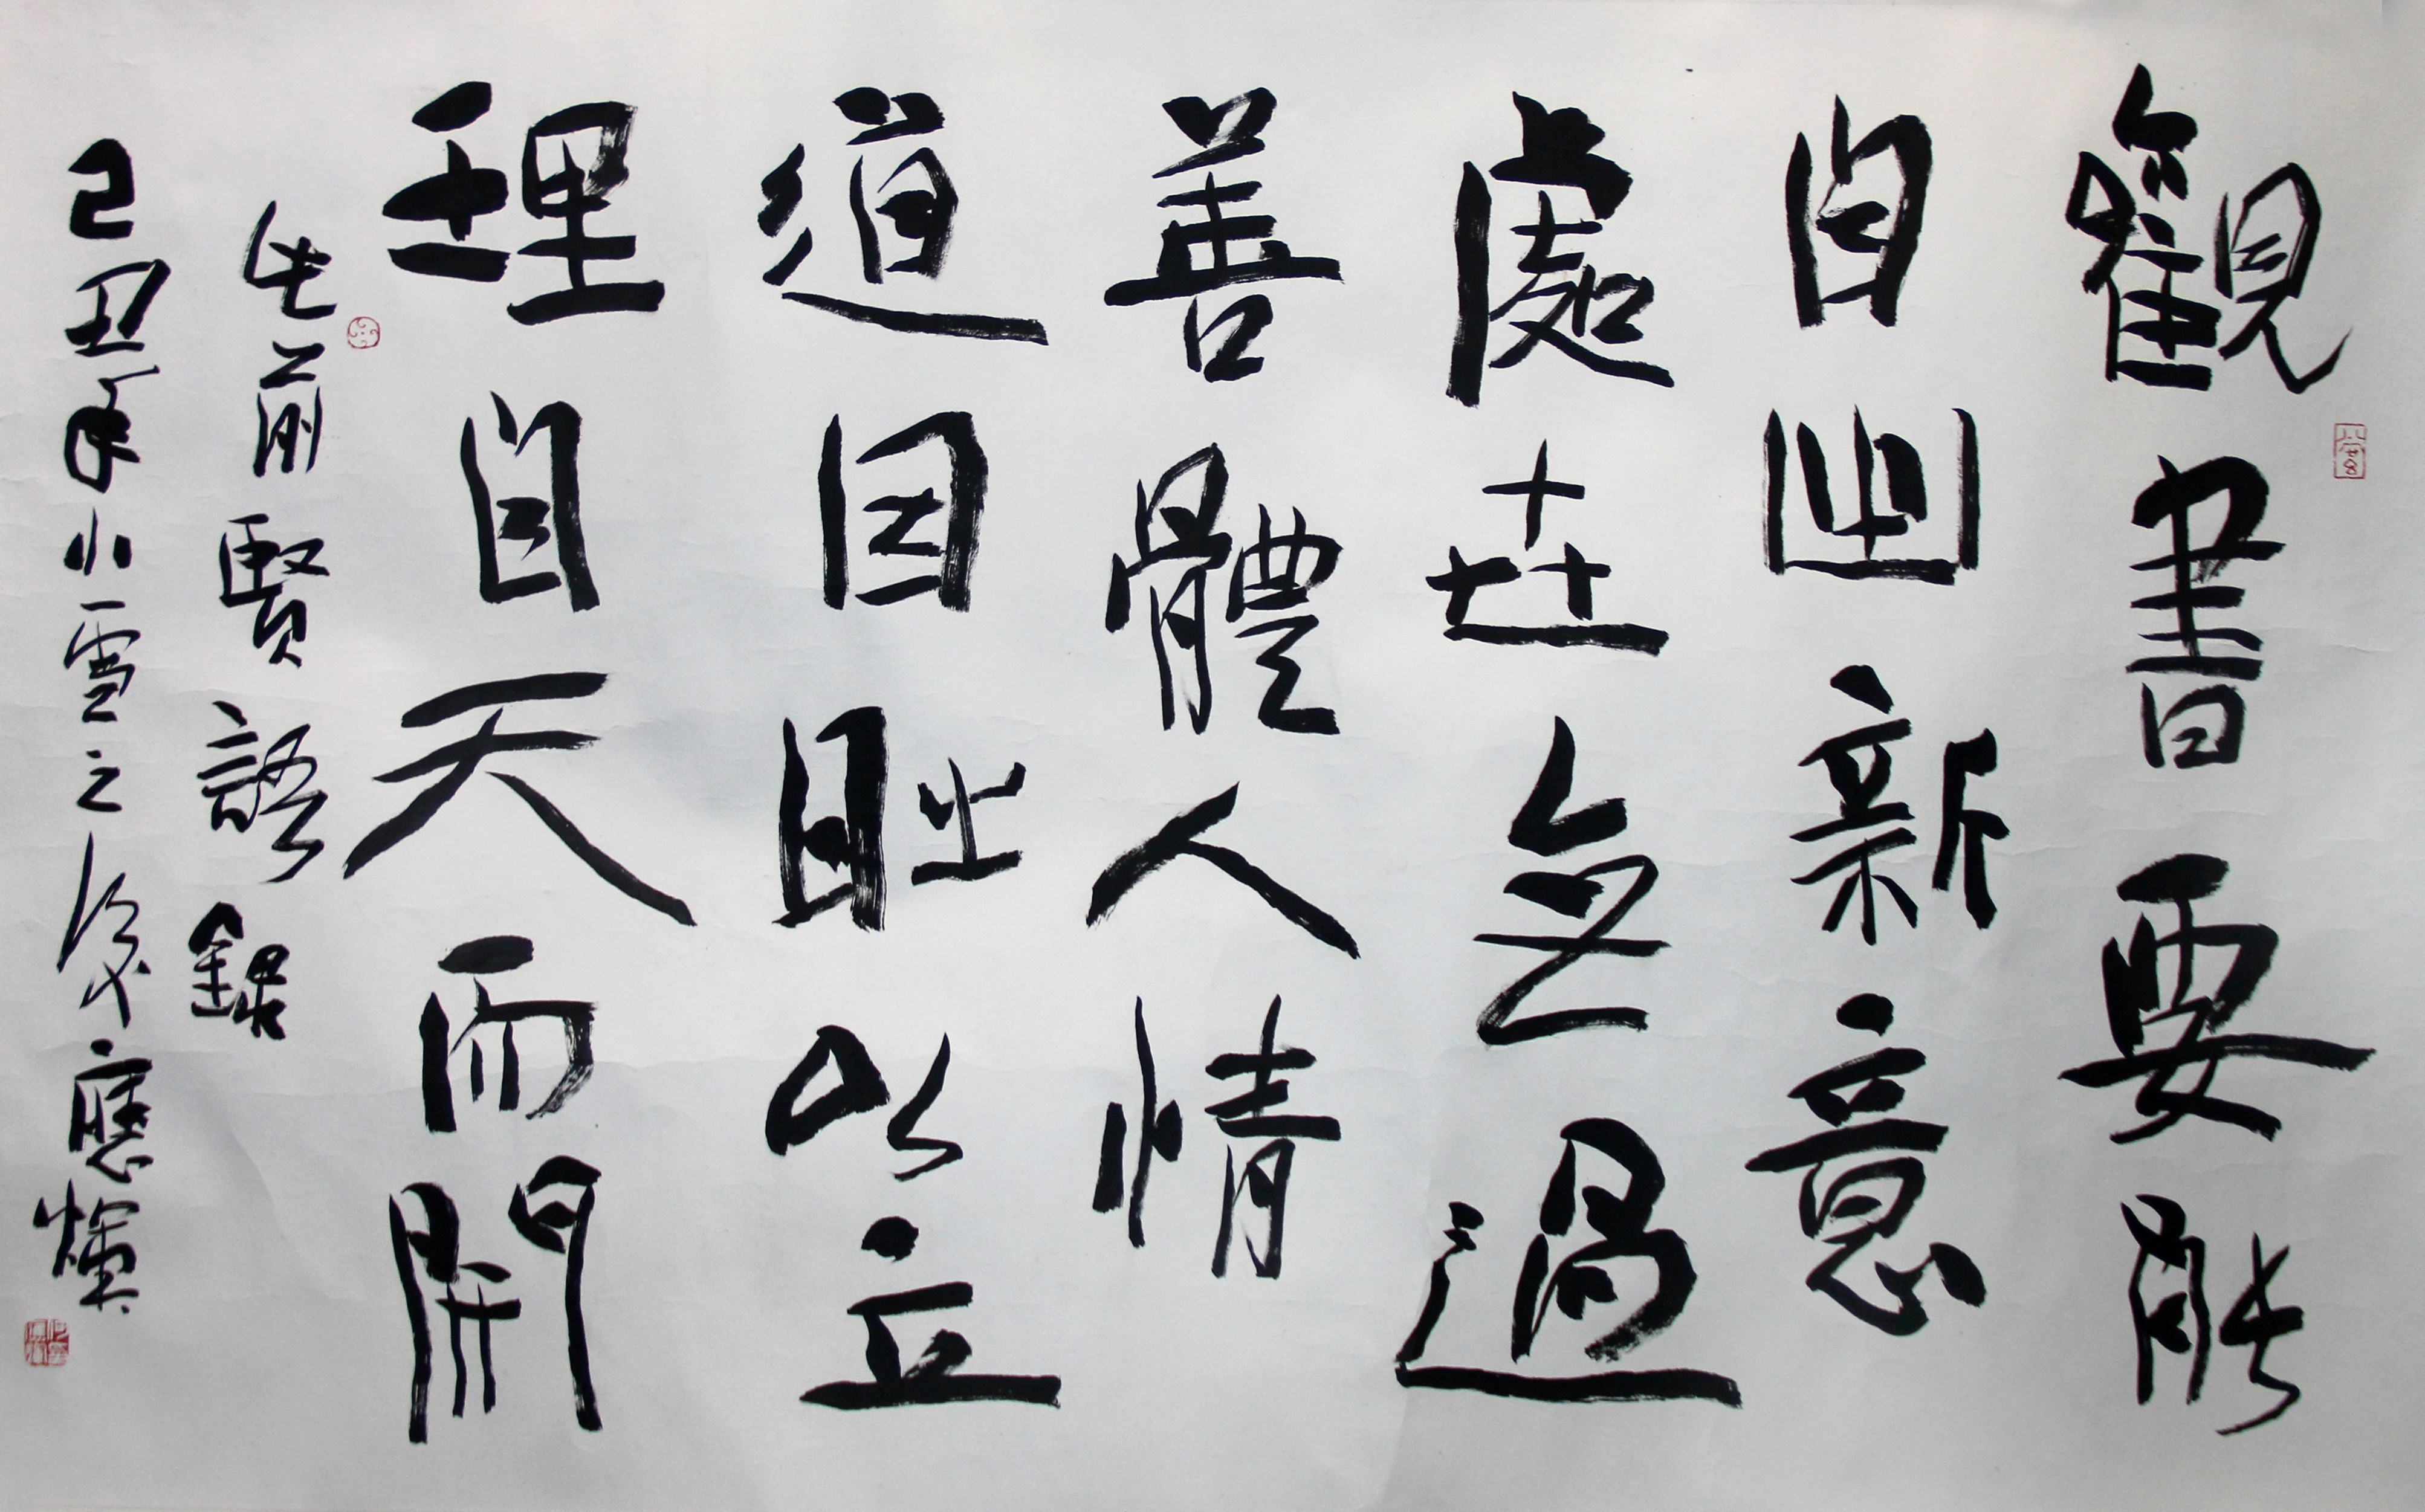 觀書要能
自出新意
處世無過
善體人情
道因時以立
理自天而開
前賢語錄
己丑年小雪之後應煇